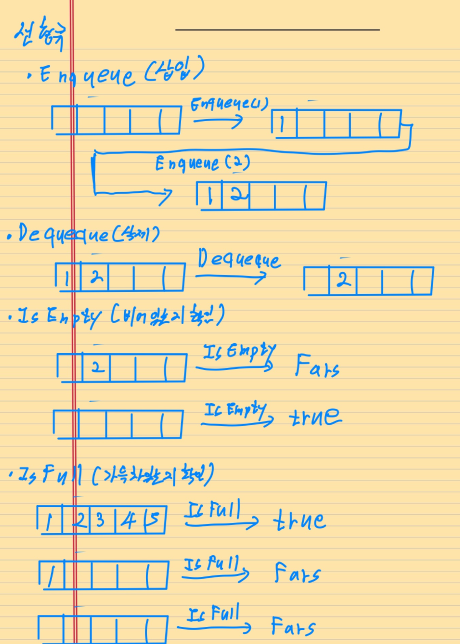 선형큐
· Enqueue (삽입)
Enqueue(1)
1
Enqueue (2)
1 2
· Dequeue (삭제)
1 2 Dequeue 2
· Is Empty (비어있는지 확인)
2 Is Empty Fars
Is Empty true
· Is Full (가득차있는지 확인)
1 2 3 4 5 Is Full true
1 Is Full Fars
Is Full Fars